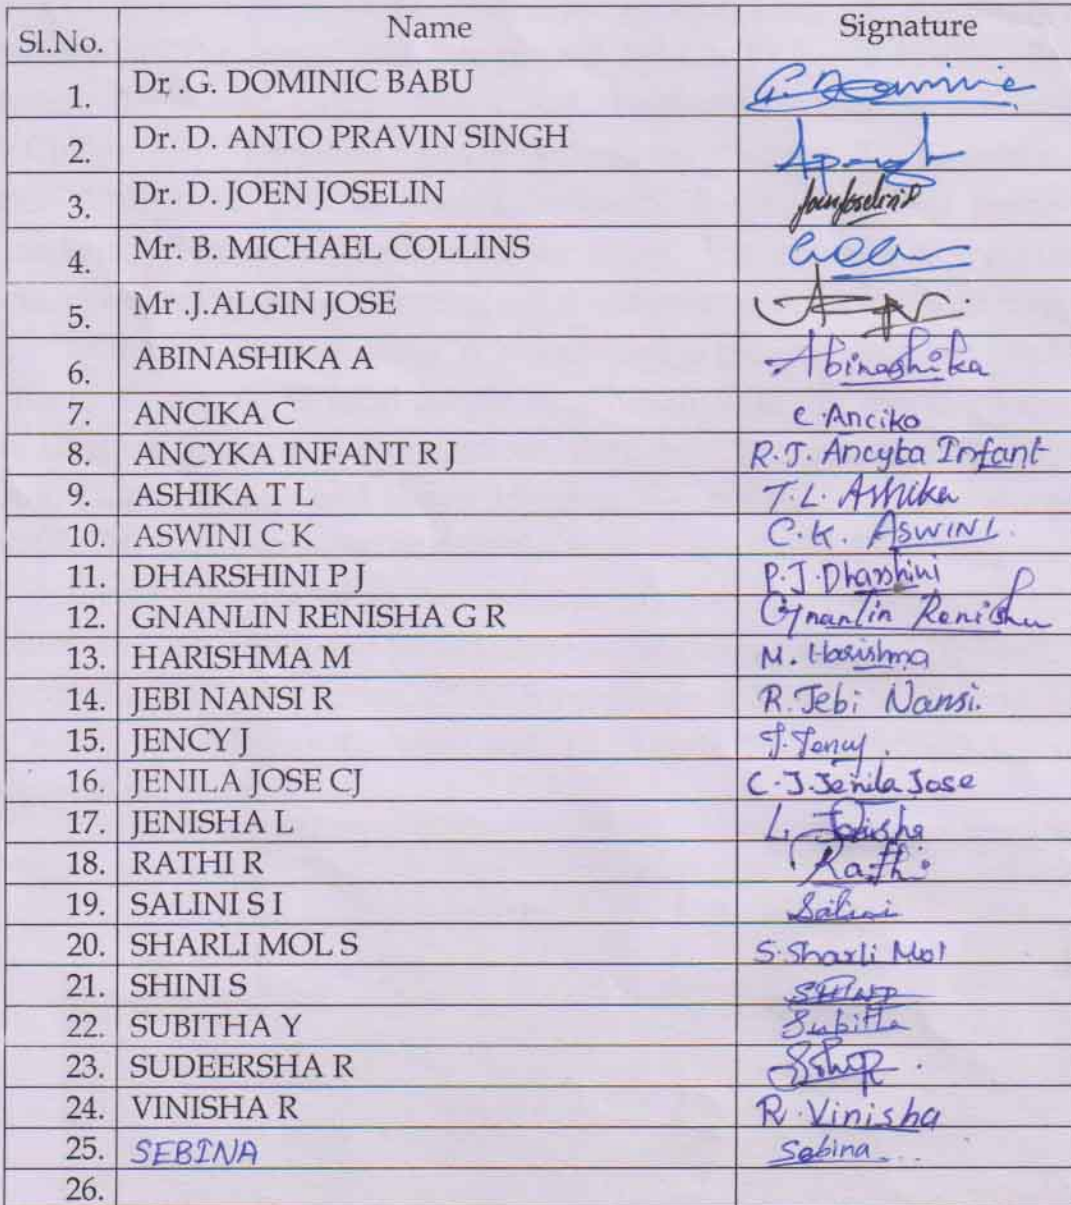 Sl.No. Name Signature
1. Dr .G. DOMINIC BABU G. Dominic
2. Dr. D. ANTO PRAVIN SINGH
3. Dr. D. JOEN JOSELIN JoenJoselin
4. Mr. B. MICHAEL COLLINS
5. Mr .J.ALGIN JOSE
6. ABINASHIKA A Abinashika
7. ANCIKA C C. Ancika
8. ANCYKA INFANT R J R. J. Ancyka Infant
9. ASHIKA T L T. L. Ashika
10. ASWINI C K C. K. ASWINI.
11. DHARSHINI P J P. J. Dharshini
12. GNANLIN RENISHA G R Gnanlin Renisha
13. HARISHMA M M. Harishma
14. JEBI NANSI R R. Jebi Nansi.
15. JENCY J J. Jency.
16. JENILA JOSE CJ C. J. Jenila Jose
17. JENISHA L L. Jenisha
18. RATHI R Rathi
19. SALINI S I Salini
20. SHARLI MOL S S. Sharli Mol
21. SHINI S SHINI
22. SUBITHA Y Subitha
23. SUDEERSHA R
24. VINISHA R R. Vinisha
25. SEBINA Sebina
26.